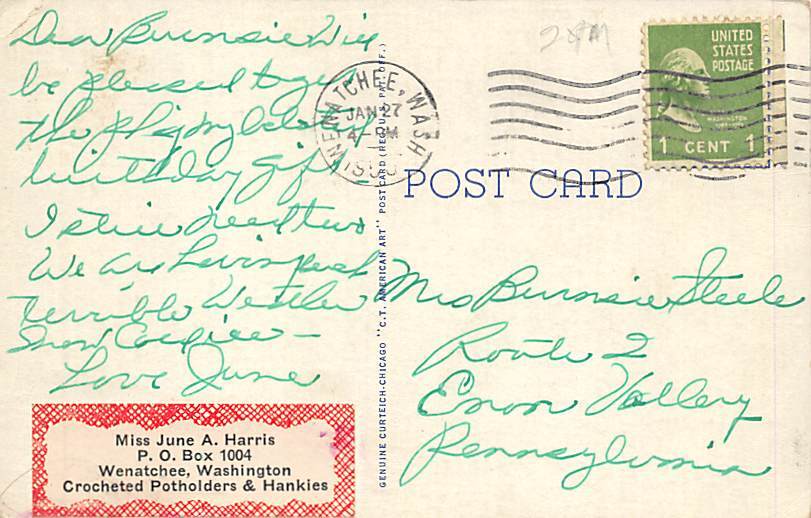 Dear Burnsie Will
be pleased to get
the p
birthday gift
I still need two
We are having such
terrible Weather
Snow Cold ice —
Love June
Miss June A. Harris
P. O. Box 1004
Wenatchee, Washington
Crocheted Potholders & Hankies
GENUINE CURTEICH-CHICAGO "C.T. AMERICAN ART" POST CARD (REG. U.S. PAT. OFF.)
WENATCHEE, WASH.
JAN 27
4 - PM
UNITED
STATES
POSTAGE
WASHINGTON
1 CENT 1
POST CARD
Mrs Burnsie Steele
Route 2
Enon Valley
Pennsylvania